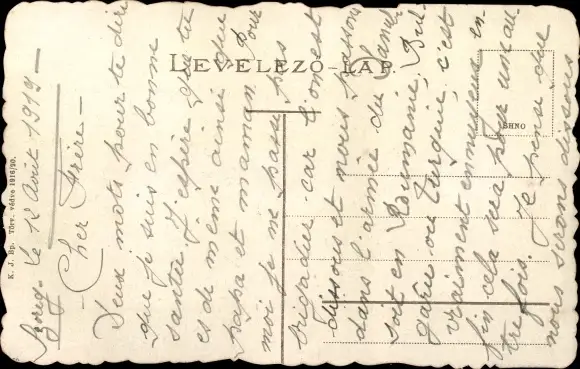 LEVELEZŐ-LAP.
K. J. Bp. Törv. védve 1916/90.
le 12 Avril 1919
Cher Frère
Deux mots pour te dire
que je suis en bonne
santé J'espère que tu
es de même ainsi que
papa et maman. Pour
moi je ne passe pas
brigadier car l'on est
dissous et nous passons
dans l'armée du Danube
soit en Roumanie, Bul-
garie ou Turquie, c'est
vraiment ennuyeux en-
fin cela sera pour une au-
tre fois. Je pense que
nous serons dissous